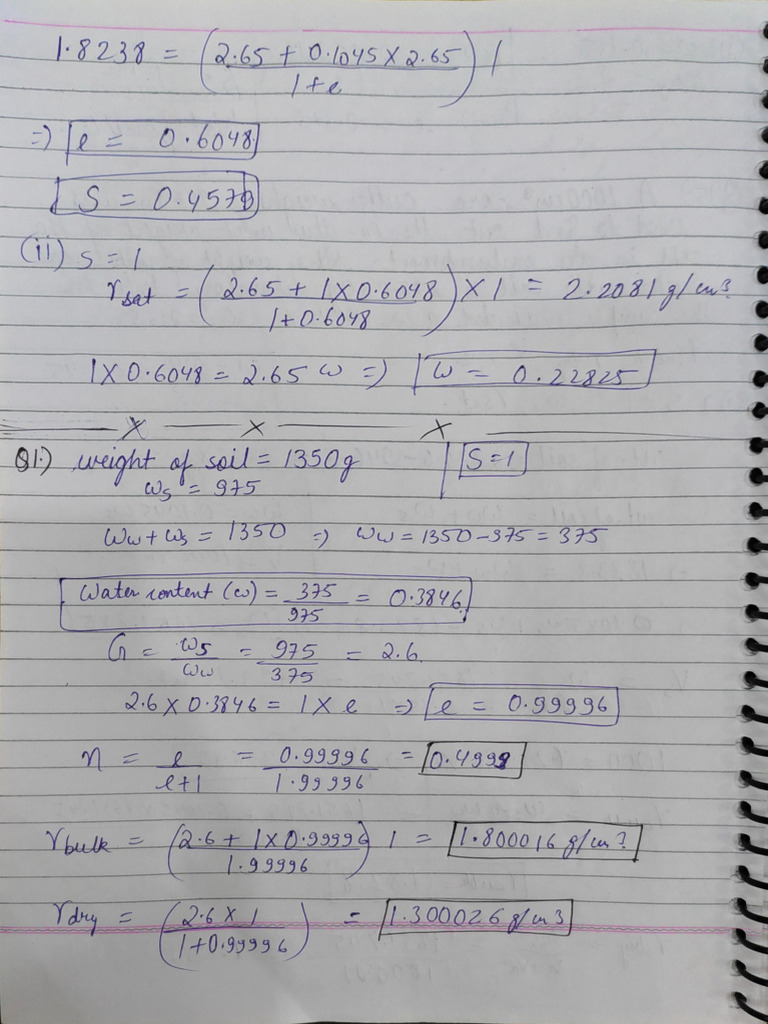 1.8238 = (2.65 + 0.1045 × 2.65 / 1+e) 1
=) e = 0.6048
S = 0.4579
(ii) s = 1
γsat = (2.65 + 1 × 0.6048 / 1+0.6048) × 1 = 2.2081 g/cm³
1 × 0.6048 = 2.65 ω =) ω = 0.22825
× × ×
Q1.) weight of soil = 1350g S = 1
ωs = 975
ωw + ωs = 1350 =) ωw = 1350 - 375 = 375
Water content (ω) = 375/975 = 0.3846
G = ωs/ωw = 975/375 = 2.6
2.6 × 0.3846 = 1 × e => e = 0.99996
n = e/e+1 = 0.99996/1.99996 = 0.4998
γbulk = (2.6 + 1 × 0.99996 / 1.99996) 1 = 1.800016 g/cm³
γdry = (2.6 × 1 / 1+0.99996) = 1.300026 g/cm3